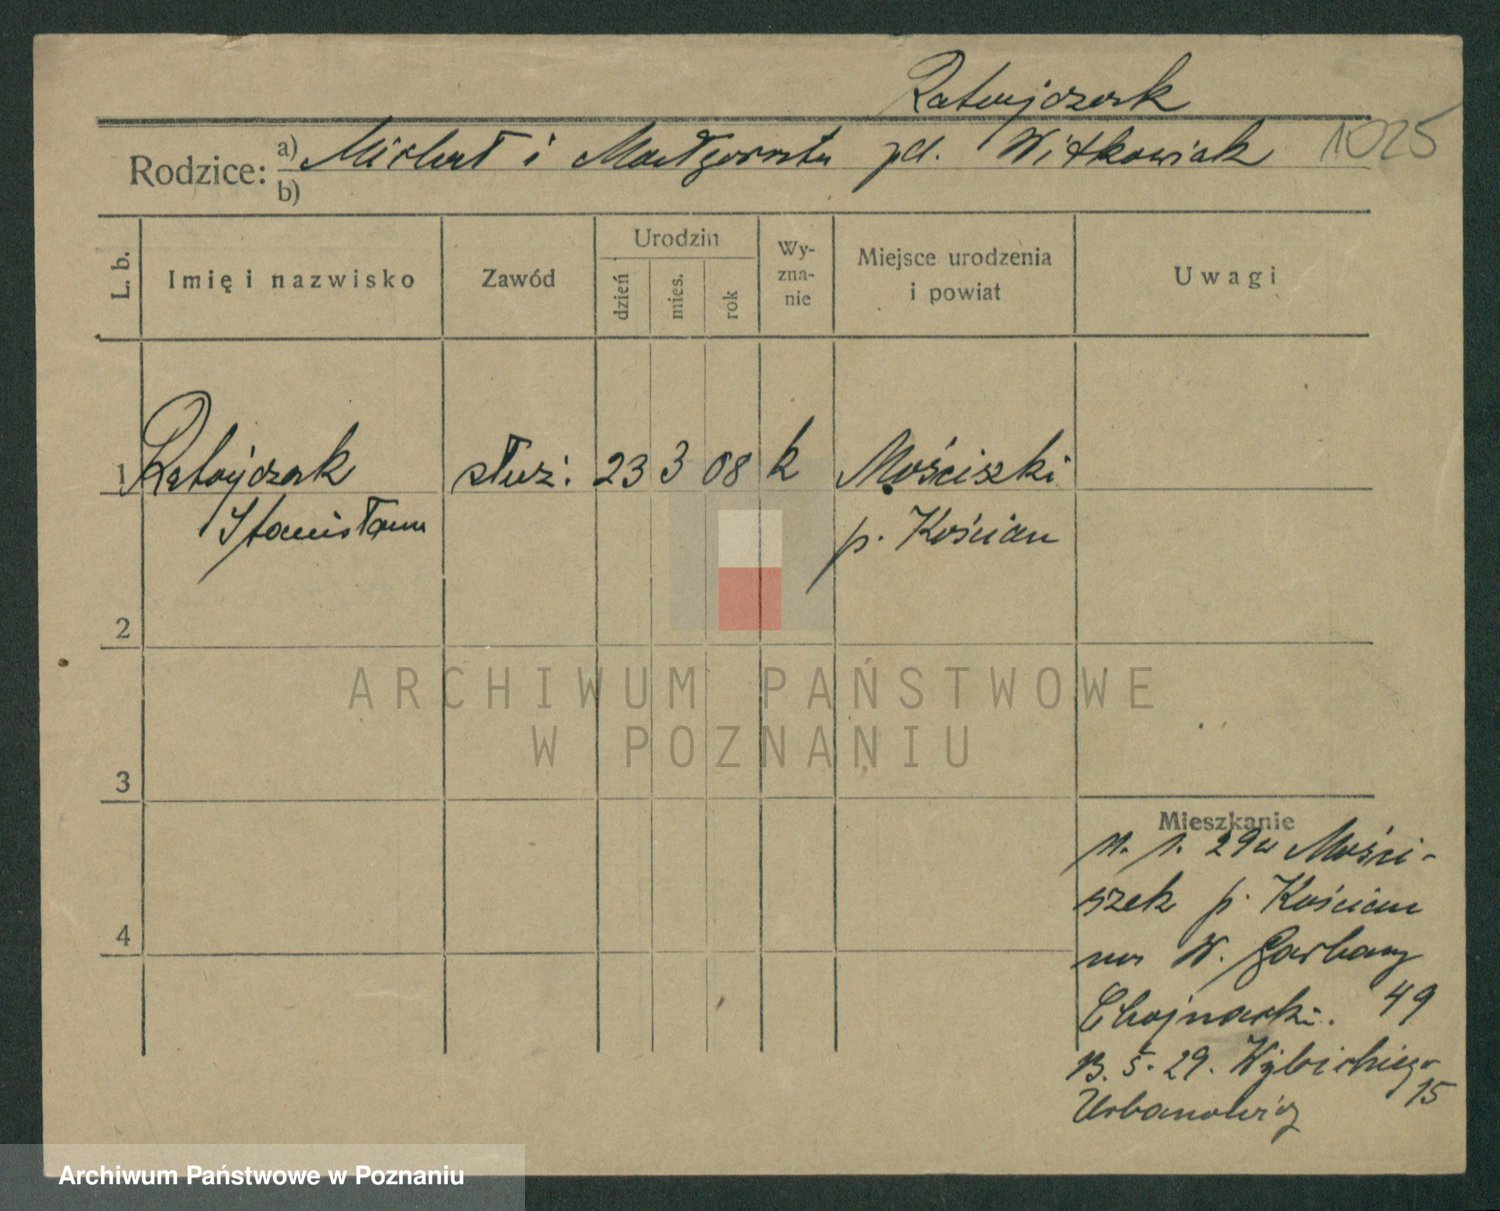 Ratajczak
1025
Rodzice: a) Michał i Małgorzata zd. Witkowiak
b)
L. b.
Imię i nazwisko
Zawód
Urodzin
dzień
mies.
rok
Wy-
zna-
nie
Miejsce urodzenia
i powiat
Uwagi
1 Ratajczak służ. 23 3 08 k Mościszki
Stanisława p. Kościan
2
3
4
Mieszkanie
29 z Mości-
szek p. Kościan
na W. Garbary
Chojnacki. 49
13. 5. 29. Wybickiego
15
Urbanowicz
ARCHIWUM PAŃSTWOWE
W POZNANIU
Archiwum Państwowe w Poznaniu